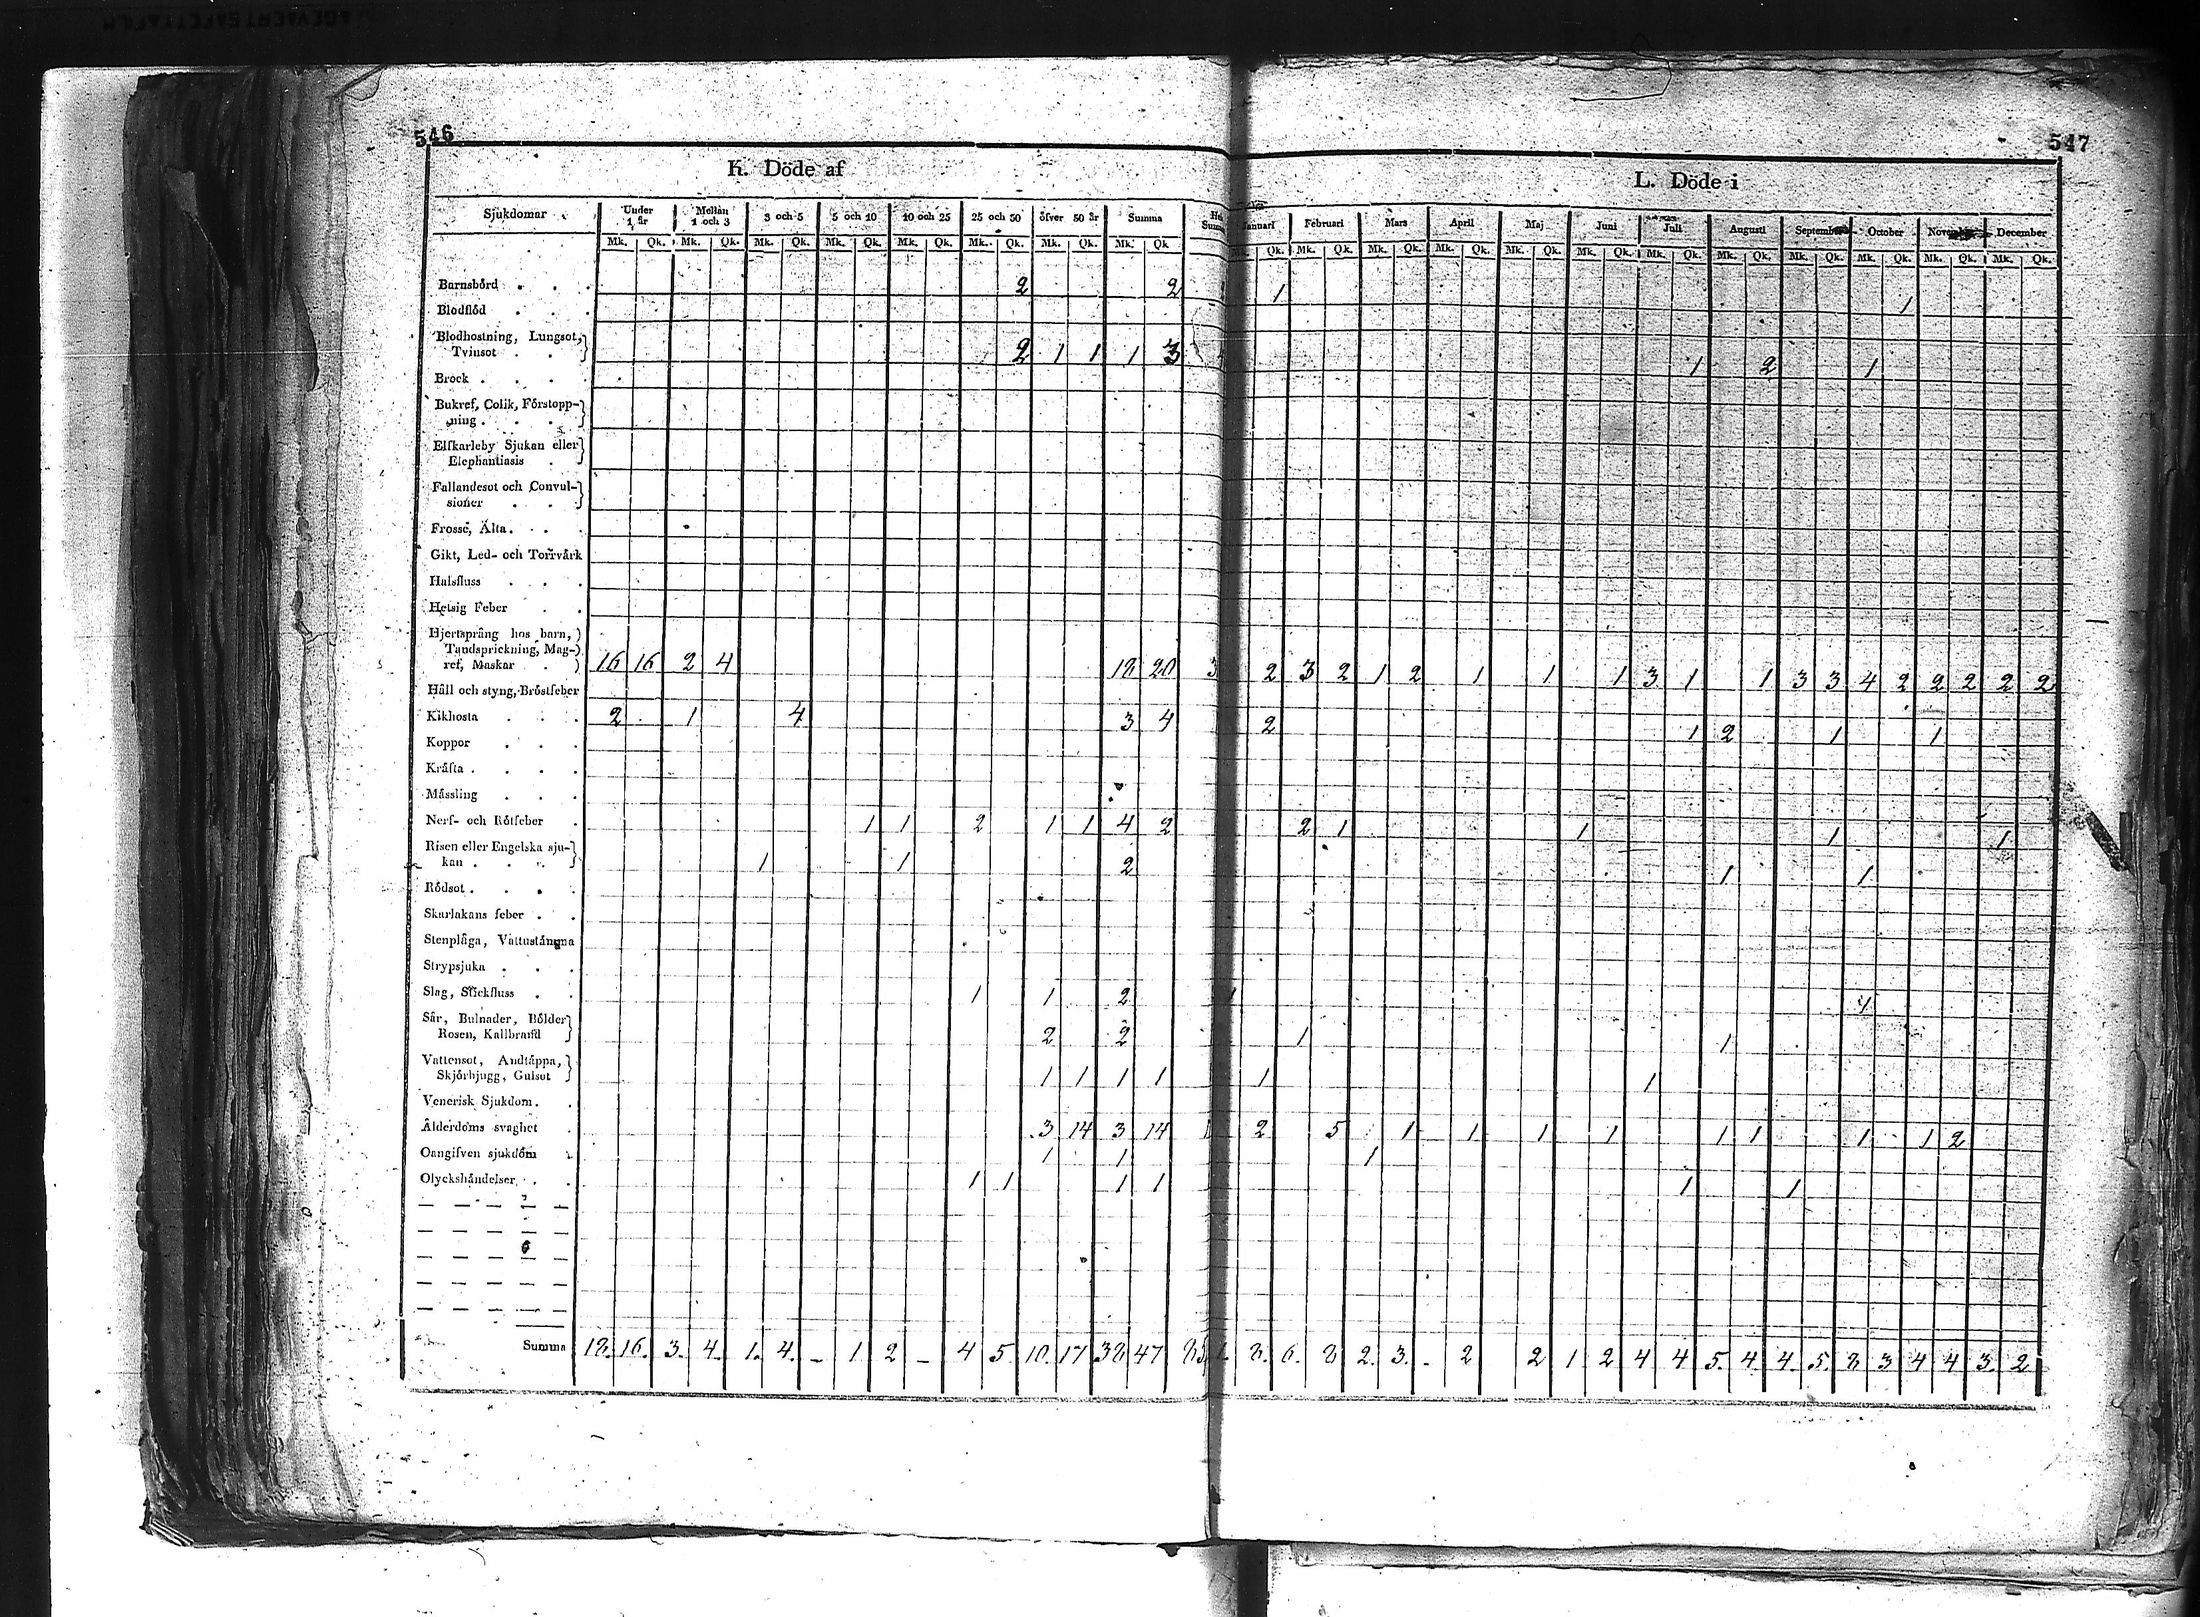 546
547
K. Döde af
L. Döde i
Sjukdomar Under 1 år Mellan 1 och 3 3 och 5 5 och 10 10 och 25 25 och 50 öfver 50 år Summa
Januari Februari Mars April Maj Juni Juli Augusti September October November December
Mk. Qk. Mk. Qk. Mk. Qk. Mk. Qk. Mk. Qk. Mk. Qk. Mk. Qk. Mk. Qk
Mk. Qk. Mk. Qk. Mk. Qk. Mk. Qk. Mk. Qk. Mk. Qk. Mk. Qk. Mk. Qk. Mk. Qk. Mk. Qk. Mk. Qk. Mk. Qk.
Barnsbörd . . . 2 2 1 1
Blodflöd . . .
Blodhostning, Lungsot,
Tvinsot . . 2 1 1 1 3 1 2 1
Bråck . . . .
Bukref, Colik, Förstopp-
ning . . . .
Elfkarleby Sjukan eller
Elephantiasis .
Fallandesot och Convul-
sioner . . .
Frossa, Älta . . .
Gikt, Led- och Torrvärk
Halsfluss . . .
Hetsig Feber . .
Hjertsprång hos barn,
Tandsprickning, Mag-
ref, Maskar . 16 16 2 4 18 20 2 3 2 1 2 1 1 1 3 1 1 3 3 4 2 2 2 2 2
Håll och styng, Bröstfeber
Kikhosta . . . 2 1 4 3 4 2 1 2 1 1
Koppor . . .
Kräfta . . . .
Mässling . . .
Nerf- och Rötfeber . 1 1 2 1 1 4 2 2 1 1 1 1
Risen eller Engelska sju-
kan . . . 1 1 2 1 1
Rödsot . . . .
Skarlakans feber . .
Stenplåga, Vattustämma
Strypsjuka . . .
Slag, Stickfluss . . 1 1 2 1 1
Sår, Bulnader, Bölder
Rosen, Kallbrand 2 2 1 1
Vattensot, Andtäppa,
Skjörbjugg, Gulsot 1 1 1 1 1 1
Venerisk Sjukdom . .
Ålderdoms svaghet . 3 14 3 14 2 5 1 1 1 1 1 1 1 1 2
Oangifven sjukdom . 1 1 1
Olyckshändelser . . 1 1 1 1 1 1
Summa 18. 16. 3. 4. 1. 4. - 1 2 - 4 5. 10. 17 38 47 85 1. 8. 6. 8 2. 3. - 2 2 1 2 4 4 5. 4. 4. 5. 8 3 4 4 3. 2